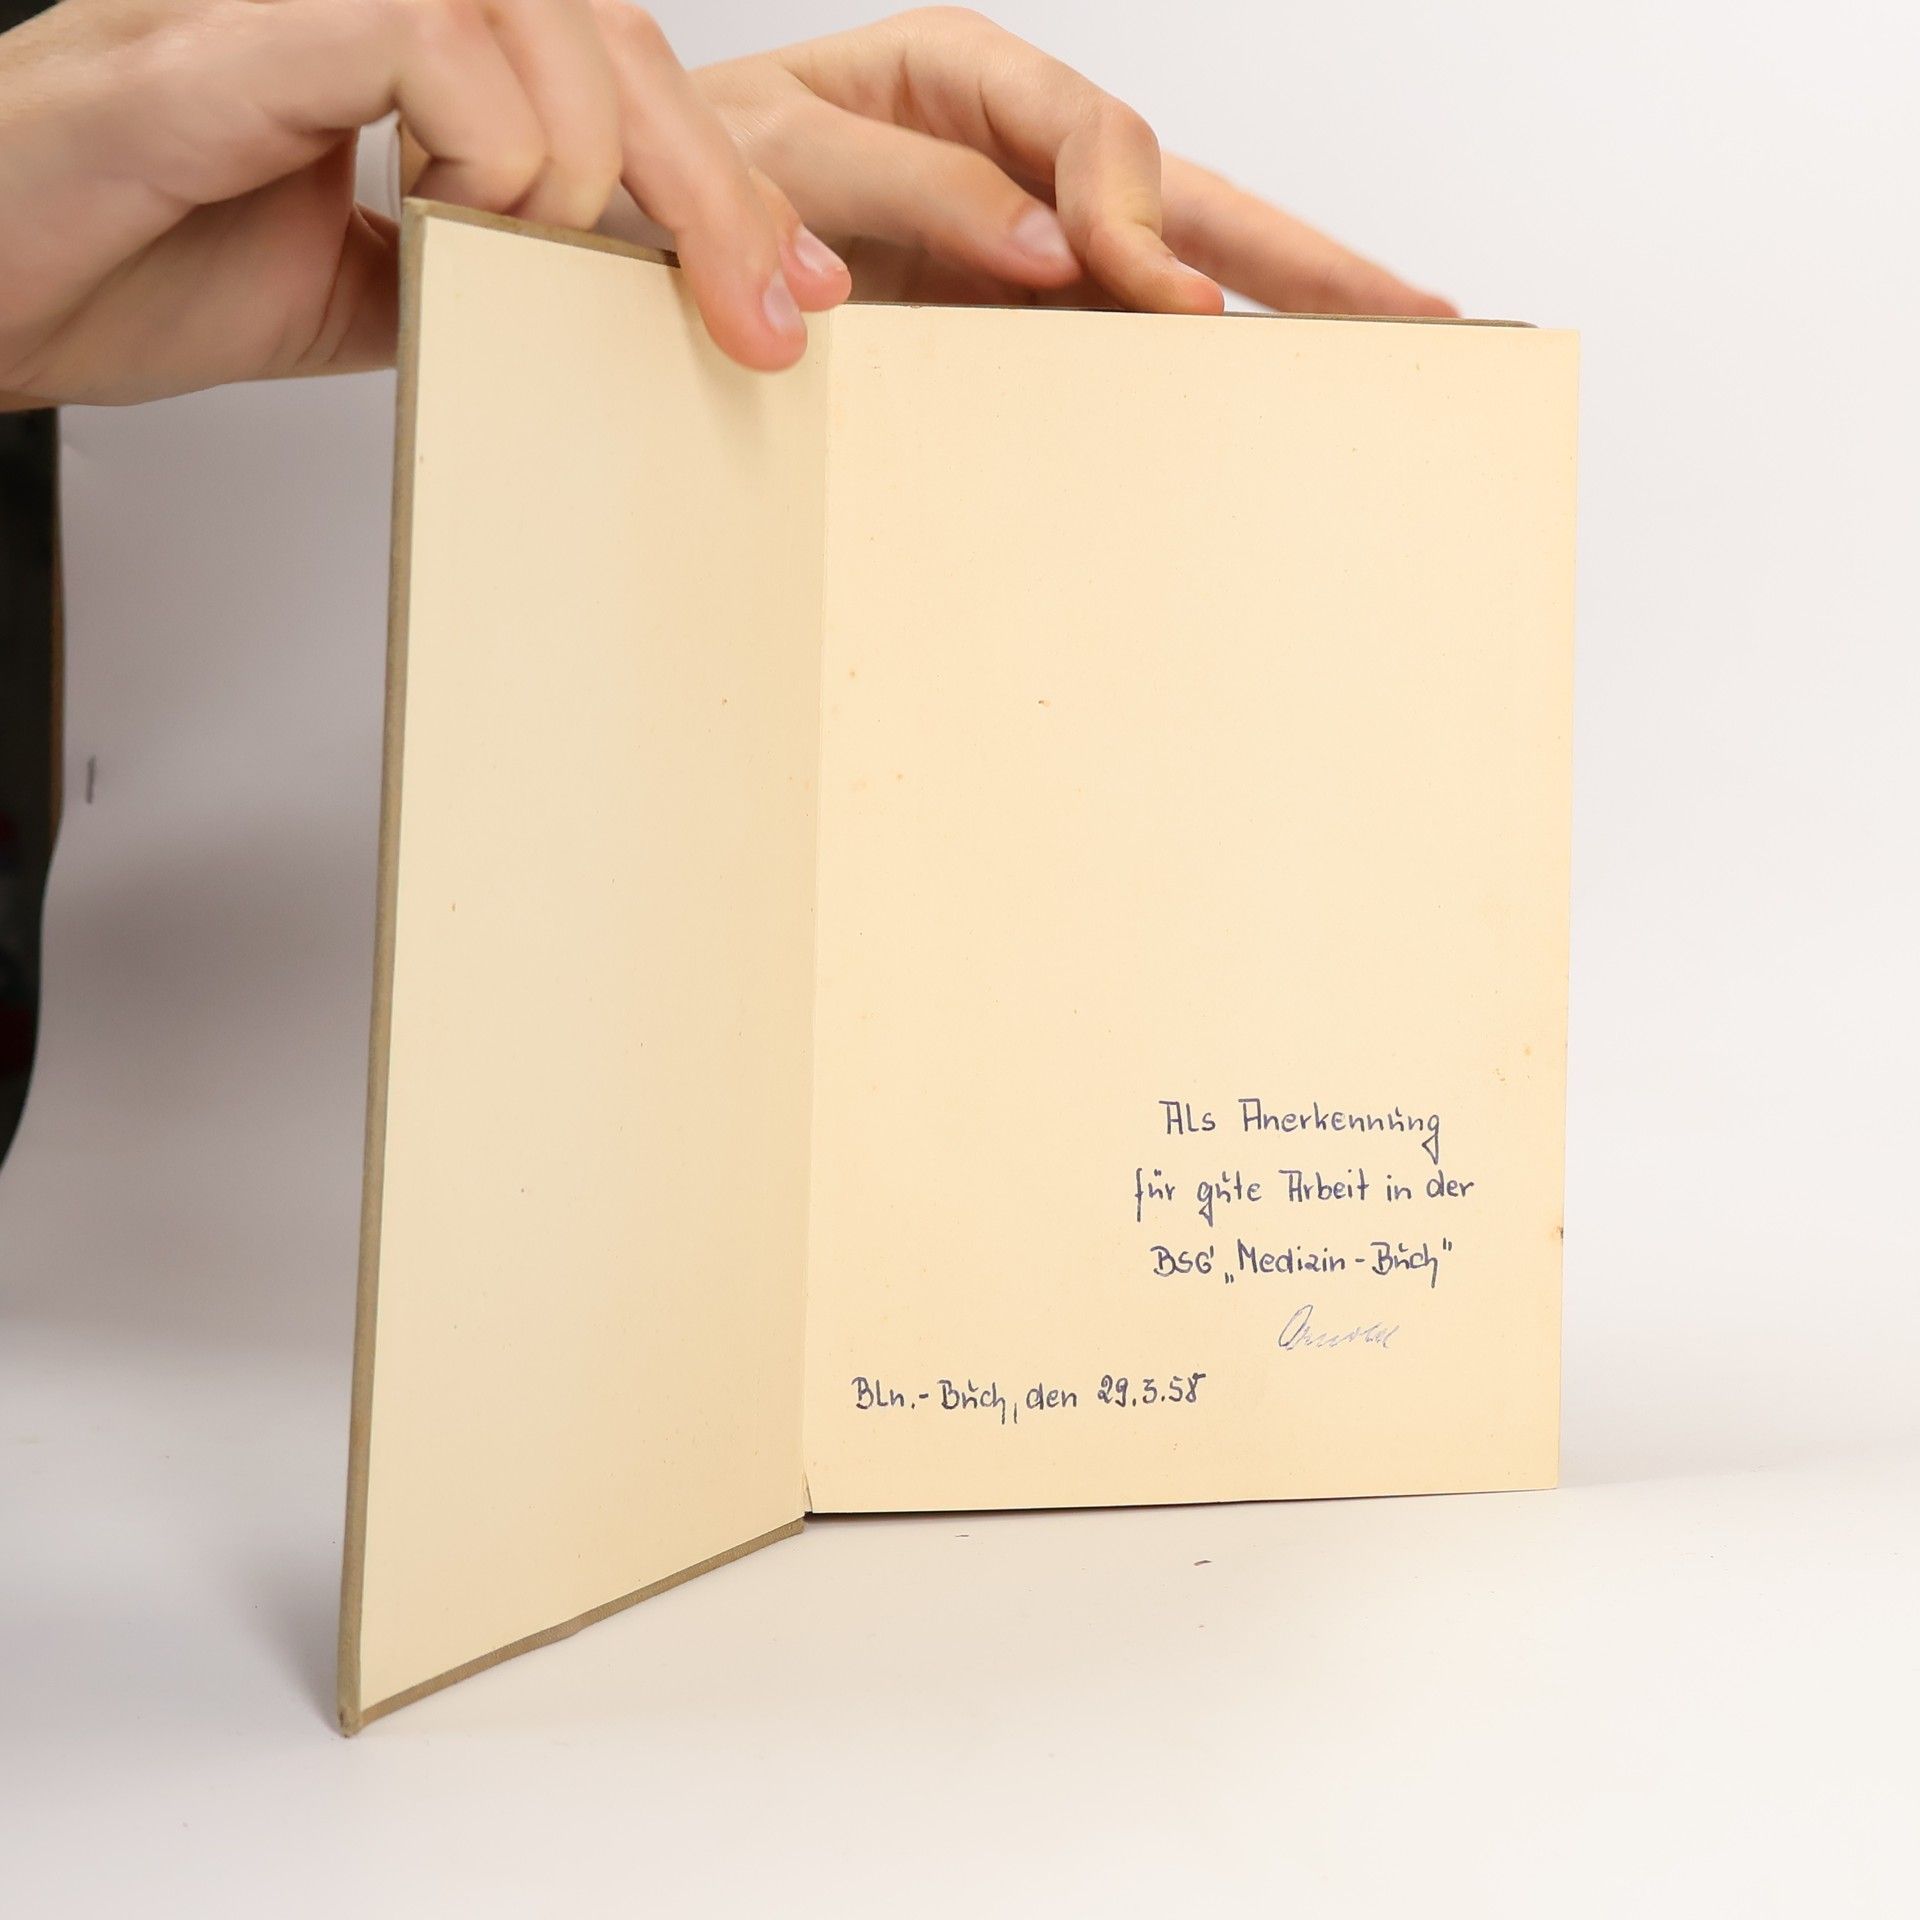 Als Anerkennung
für gute Arbeit in der
BSG „Medizin-Buch"
Bln.-Buch, den 29.3.58